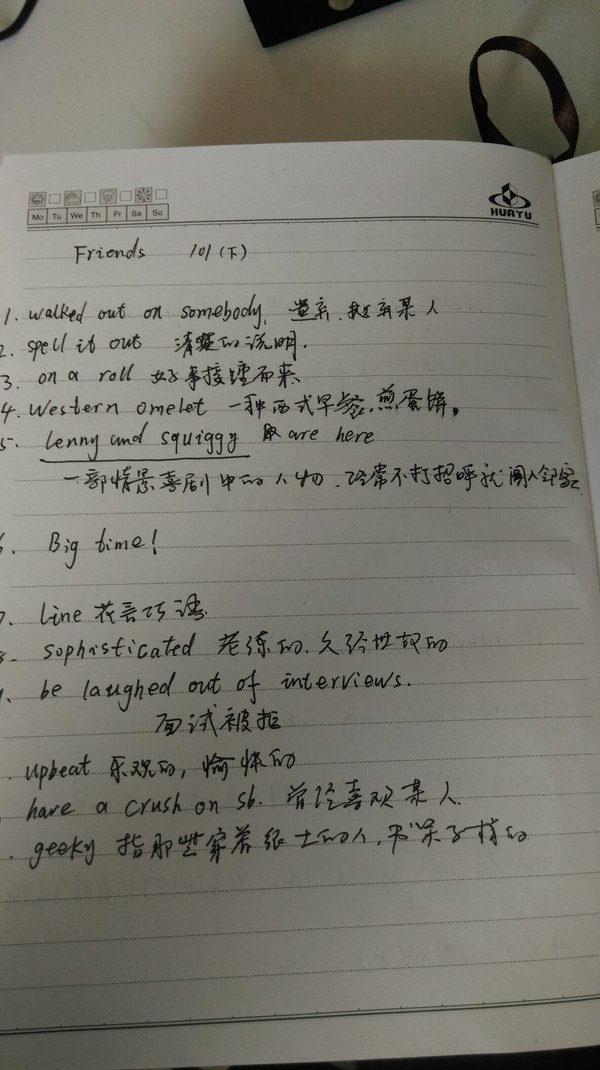 Mo Tu We Th Fr Sa Su
HUAYU
Friends 101(下)
1. walked out on somebody, 遗弃.抛弃某人
2. spell it out 清楚的说明.
3. on a roll 好事接踵而来
4. Western omelet 一种西式早餐,煎蛋饼。
5. lenny and squiggy are here
一部情景喜剧中的人物,经常不打招呼就闯入邻家
6. Big time!
7. line 花言巧语
8. sophisticated 老练的.久经世故的
9. be laughed out of interviews.
面试被拒
. upbeat 乐观的,愉快的
. have a crush on sb. 曾经喜欢某人.
. geeky 指那些穿着很土的人,书呆子样的